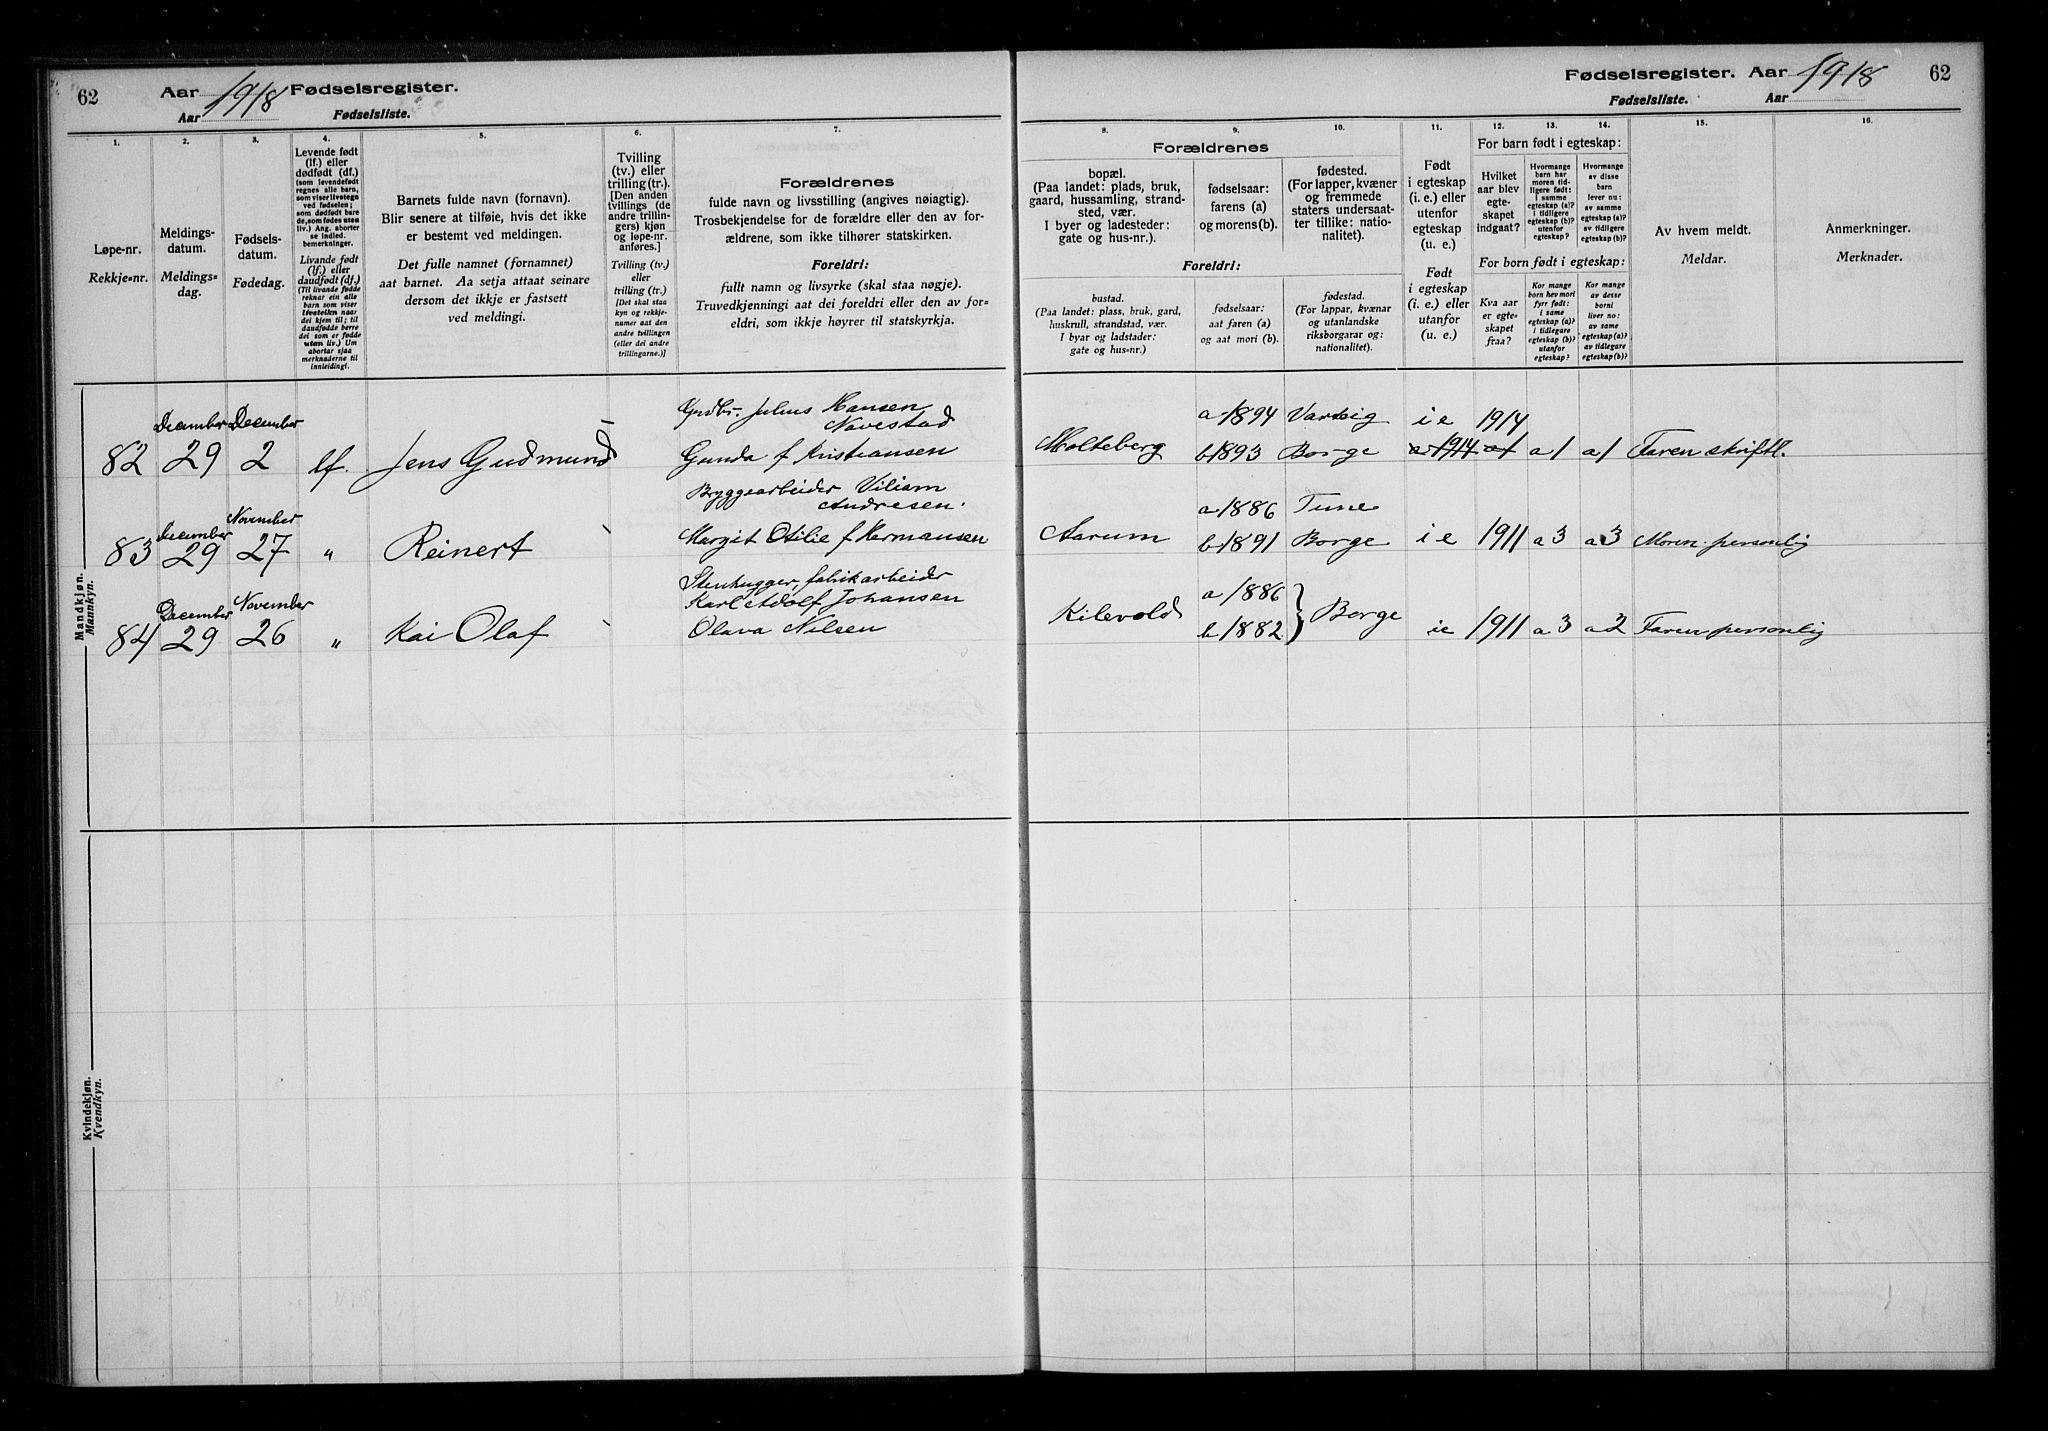 62 Aar 1918 Fødselsregister.
Aar Fødselsliste.
1. 2. 3. 4. 5. 6. 7.
Løpe-nr.
Rekkje-nr.
Meldings-
datum.
Meldings-
dag.
Fødsels-
datum.
Fødedag.
Levende født
(lf.) eller
dødfødt (df.)
(som levendefødt
regnes alle barn,
som viser livstegn
ved fødselen;
som dødfødt bare
de, som fødes uten
liv.) Ang. aborter
se indled.
bemerkninger.
Livande født
(lf.) eller
daudfødt (df.)
(Til livande fødde
reknar ein alle
barn som viser
livsteikn naar
dei kjem til; til
daudfødde berre
dei som er fødde
uten liv.) Um
abortar sjaa
merknaderne til
innleidingi.
Barnets fulde navn (fornavn).
Blir senere at tilføie, hvis det ikke
er bestemt ved meldingen.
Det fulle namnet (fornamnet)
aat barnet. Aa setja attaat seinare
dersom det ikkje er fastsett
ved meldingi.
Tvilling
(tv.) eller
trilling (tr.).
[Den anden
tvillings (de
andre trillin-
gers) kjøn
og løpe-nr.
anføres.]
Tvilling (tv.)
eller
trilling (tr.)
[Det skal staa
kyn og rekkje-
numer aat den
andre tvillingen
(eller dei andre
trillingarne.)]
Forældrenes
fulde navn og livsstilling (angives nøiagtig).
Trosbekjendelse for de forældre eller den av for-
ældrene, som ikke tilhører statskirken.
Foreldri:
fullt namn og livsyrke (skal staa nøgje).
Truvedkjenningi aat dei foreldri eller den av for-
eldri, som ikkje høyrer til statskyrkja.
Mandkjøn.
Mannkyn.
82 December 29 December 2 lf. Jens Gudmund
Gudbr. Julius Hansen
Navestad
Gunda f Kristiansen
83 December 29 November 27 " Reinert
Bryggearbeider Viliam
Andresen.
Margit Otilie f Hermansen
84 December 29 November 26 " Kai Olaf
Stenhugger, fabrikarbeider
Karl Adolf Johansen
Olava Nilsen
Kvindekjøn.
Kvendkyn.
Fødselsregister. Aar 1918 62
Fødselsliste. Aar
8. 9. 10. 11. 12. 13. 14. 15. 16.
Forældrenes
bopæl.
(Paa landet: plads, bruk,
gaard, hussamling, strand-
sted, vær.
I byer og ladesteder:
gate og hus-nr.).
fødselsaar:
farens (a)
og morens (b).
fødested.
(For lapper, kvæner
og fremmede
staters undersaat-
ter tillike: natio-
nalitet).
Foreldri:
bustad.
(Paa landet: plass, bruk, gard,
huskrull, strandstad, vær.
I byar og ladstader:
gate og hus-nr.)
fødselsaar:
aat faren (a)
og aat mori (b).
fødestad.
(For lappar, kvænar
og utanlandske
riksborgarar og:
nationalitet).
Født
i egteskap
(i. e.) eller
utenfor
egteskap
(u. e.)
Født
i egteskap
(i. e.) eller
utanfor
(u. e.)
For barn født i egteskap:
Hvilket
aar blev
egte-
skapet
indgaat?
Hvormange
barn har
moren tid-
ligere født:
i samme
egteskap (a)?
i tidligere
egteskap (b)?
utenfor
egteskap?
Hvormange
av disse
barn
lever nu:
av samme
egteskap (a)?
av tidligere
egteskap (b)?
For born født i egteskap:
Kva aar
er egte-
skapet
fraa?
Kor mange
born hev mori
fyrr født:
i same
egteskap (a)?
i tidlegare
egteskap (b)?
utanfor
egteskap?
Kor mange
av desse
borni
liver no:
av same
egteskap (a)?
av tidlegare
egteskap (b)?
Av hvem meldt.
Meldar.
Anmerkninger.
Merknader.
a 1894 Varteig i e 1914
Molteberg b 1893 Borge a 1914 a 1 a 1 a 1 Faren skriftl.
a 1886 Tune
Aarum b 1891 Borge i e 1911 a 3 a 3 Moren personlig
a 1886
Kilevold } Borge
b 1882 i e 1911 a 3 a 2 Faren personlig